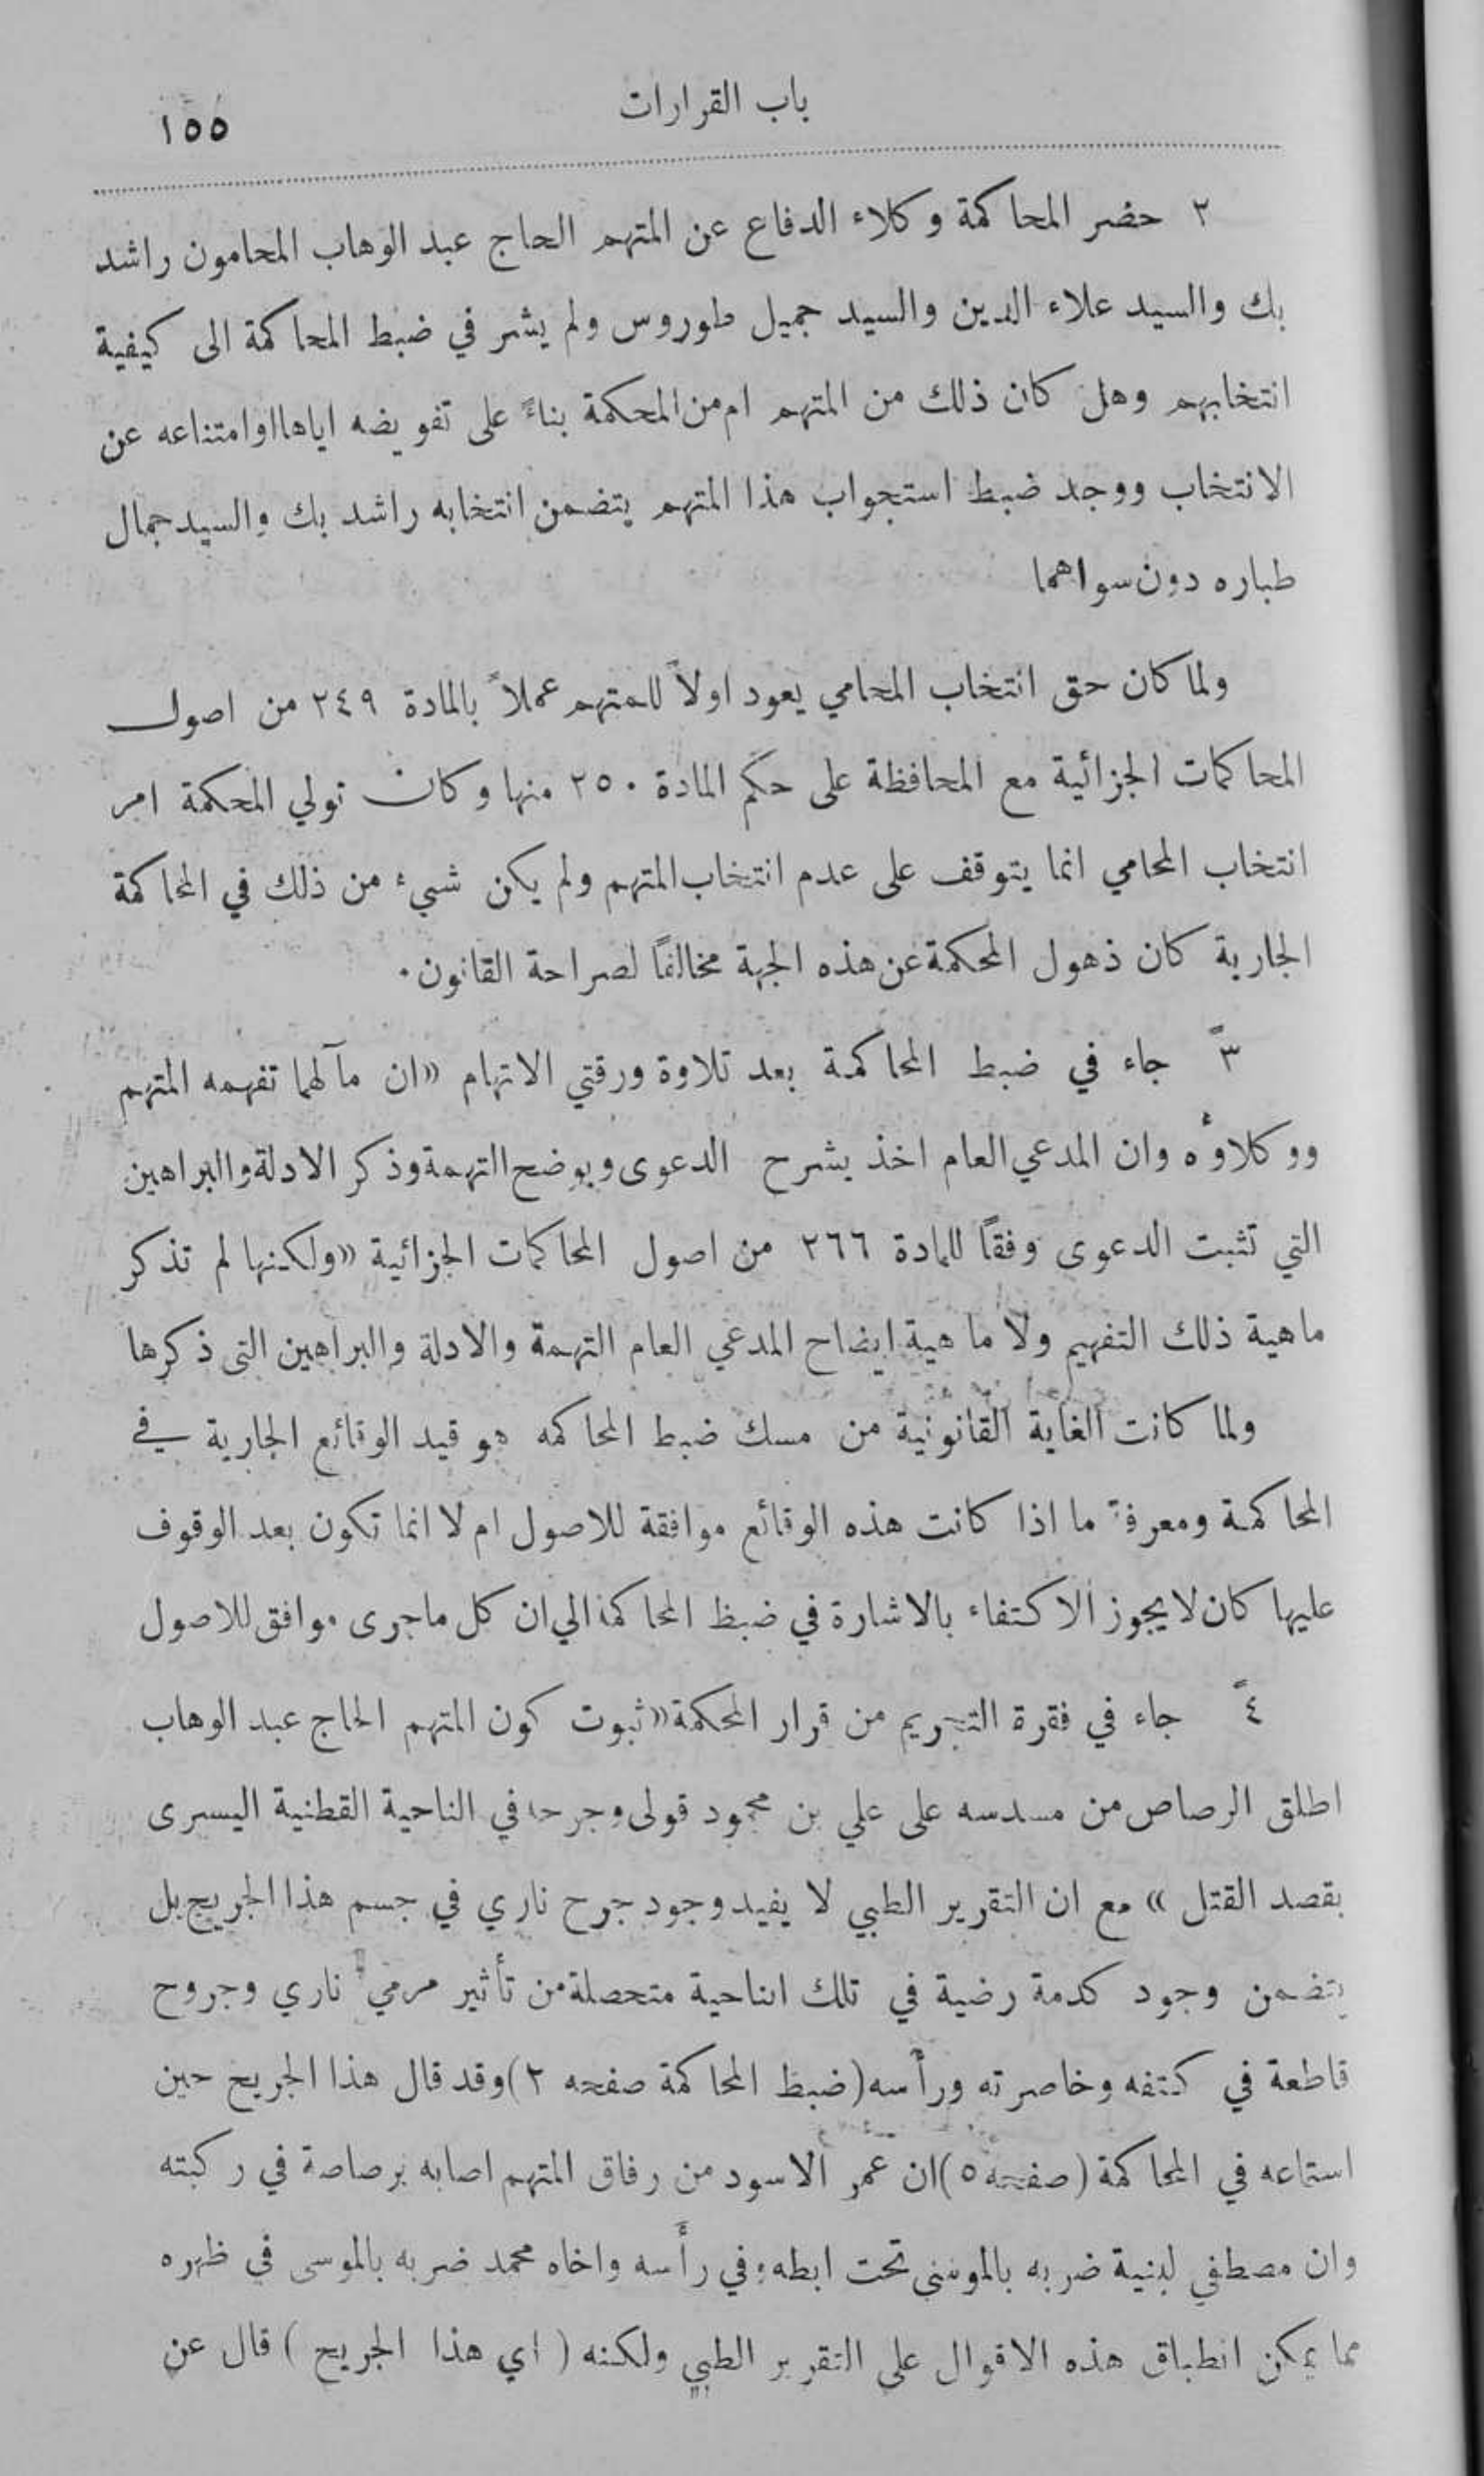 باب القرارات
١٥٥
٢ حضر المحاكمة وكلاء الدفاع عن المتهم الحاج عبد الوهاب المحامون راشد
بك والسيد علاء الدين والسيد جميل طوروس ولم يشر في ضبط المحاكمة الى كيفية
انتخابهم وهل كان ذلك من المتهم ام من المحكمة بناءً على تفويضه اياها او امتناعه عن
الانتخاب ووجد ضبط استجواب هذا المتهم يتضمن انتخابه راشد بك والسيد جمال
طباره دون سواهما
ولما كان حق انتخاب المحامي يعود اولاً للمتهم عملاً بالمادة ٢٤٩ من اصول
المحاكمات الجزائية مع المحافظة على حكم المادة ٢٥٠ منها وكان تولي المحكمة امر
انتخاب المحامي انما يتوقف على عدم انتخاب المتهم ولم يكن شيء من ذلك في المحاكمة
الجارية كان ذهول المحكمة عن هذه الجهة مخالفاً لصراحة القانون.
٣ً جاء في ضبط المحاكمة بعد تلاوة ورقتي الاتهام «ان مآلهما تفهمه المتهم
ووكلاؤه وان المدعي العام اخذ يشرح الدعوى ويوضح التهمة وذكر الادلة والبراهين
التي تثبت الدعوى وفقاً للمادة ٢٦٦ من اصول المحاكمات الجزائية «ولكنها لم تذكر
ماهية ذلك التفهيم ولا ماهية ايضاح المدعي العام التهمة والادلة والبراهين التى ذكرها
ولما كانت الغاية القانونية من مسك ضبط المحاكمه هو قيد الوقائع الجارية في
المحاكمة ومعرفة ما اذا كانت هذه الوقائع موافقة للاصول ام لا انما تكون بعد الوقوف
عليها كان لا يجوز الاكتفاء بالاشارة في ضبط المحاكمة الي ان كل ماجرى موافق للاصول
٤ً جاء في فقرة التجريم من قرار المحكمة «ثبوت كون المتهم الحاج عبد الوهاب
اطلق الرصاص من مسدسه على علي بن محمود قولى وجرحه في الناحية القطنية اليسرى
بقصد القتل» مع ان التقرير الطبي لا يفيد وجود جرح ناري في جسم هذا الجريح بل
يتضمن وجود كدمة رضية في تلك الناحية متحصلة من تأثير مرمي ناري وجروح
قاطعة في كتفه وخاصرته ورأسه (ضبط المحاكمة صفحه ٢) وقد قال هذا الجريح حين
استماعه في المحاكمة (صفحه ٥) ان عمر الاسود من رفاق المتهم اصابه برصاصة في ركبته
وان مصطفي لبنية ضربه بالموسى تحت ابطه وفي رأسه واخاه محمد ضربه بالموسى في ظهره
مما يمكن انطباق هذه الاقوال على التقرير الطبي ولكنه (اي هذا الجريح) قال عن